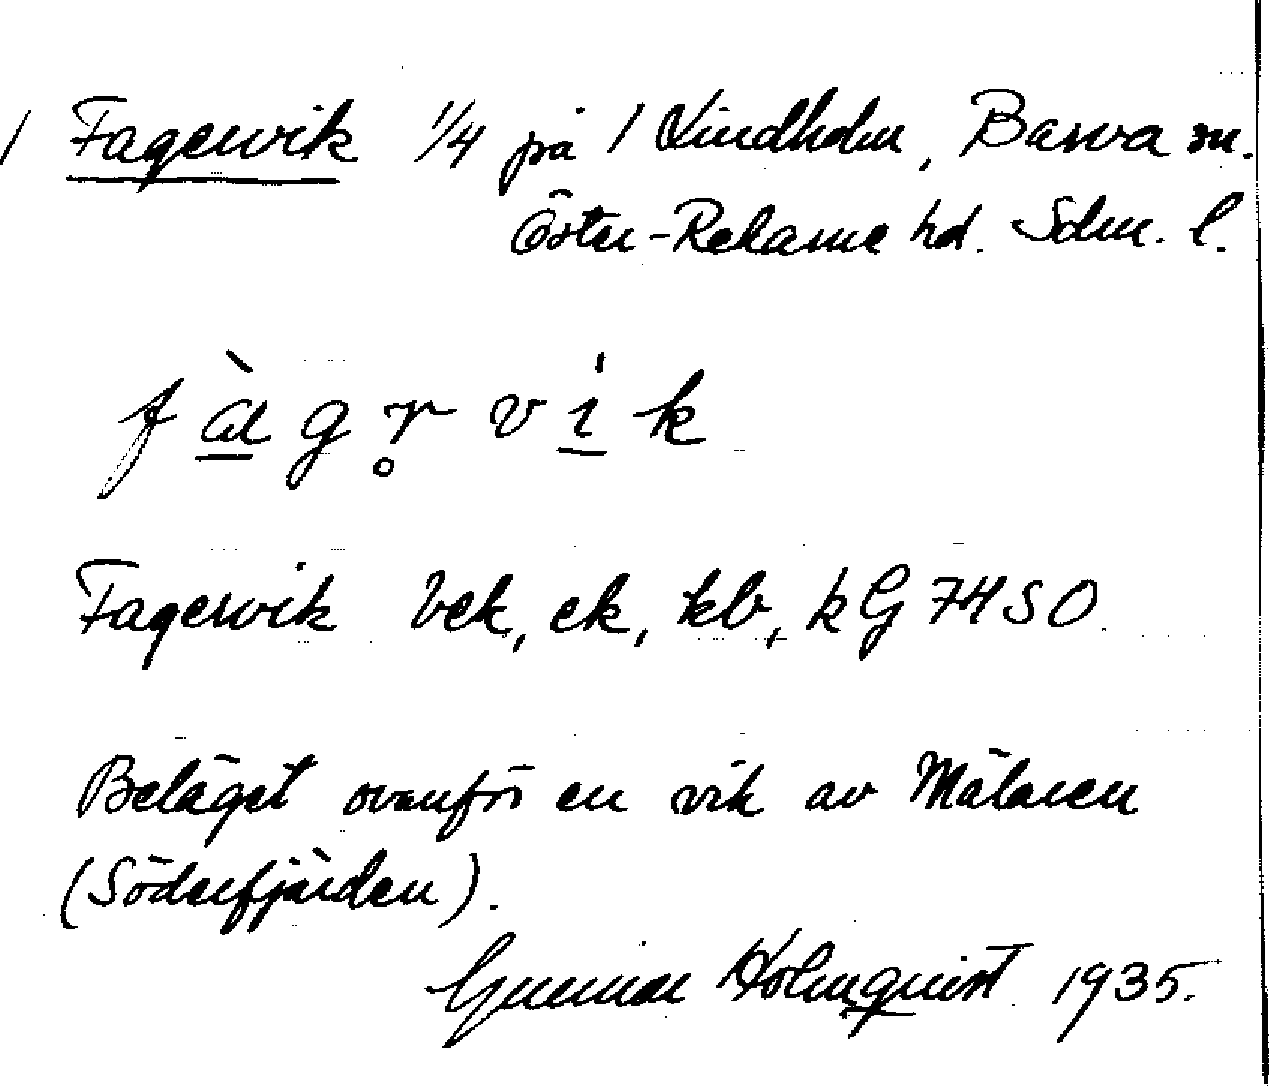 / Fagervik 1/4 på / Lindholm, Barva sn.
Öster-Rekarne hd. Sdm. l.
fàgr̥vik
Fagervik bek, ek, kb, kG 74 SO
Beläget ovanför en vik av Mälaren
(Söderfjärden).
Gunnar Holmquist 1935.